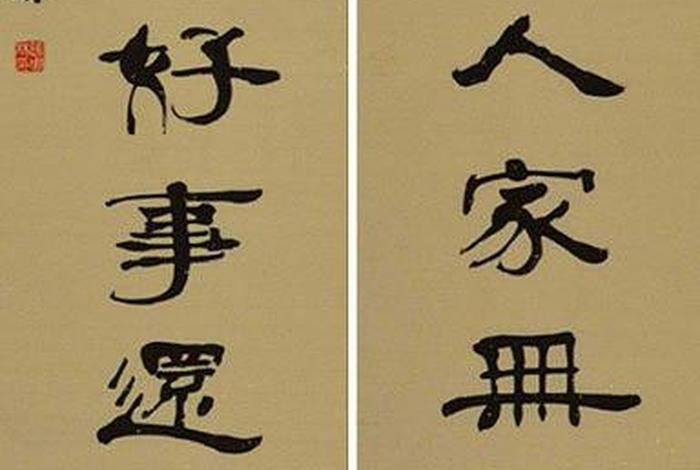 人家冊
好事還